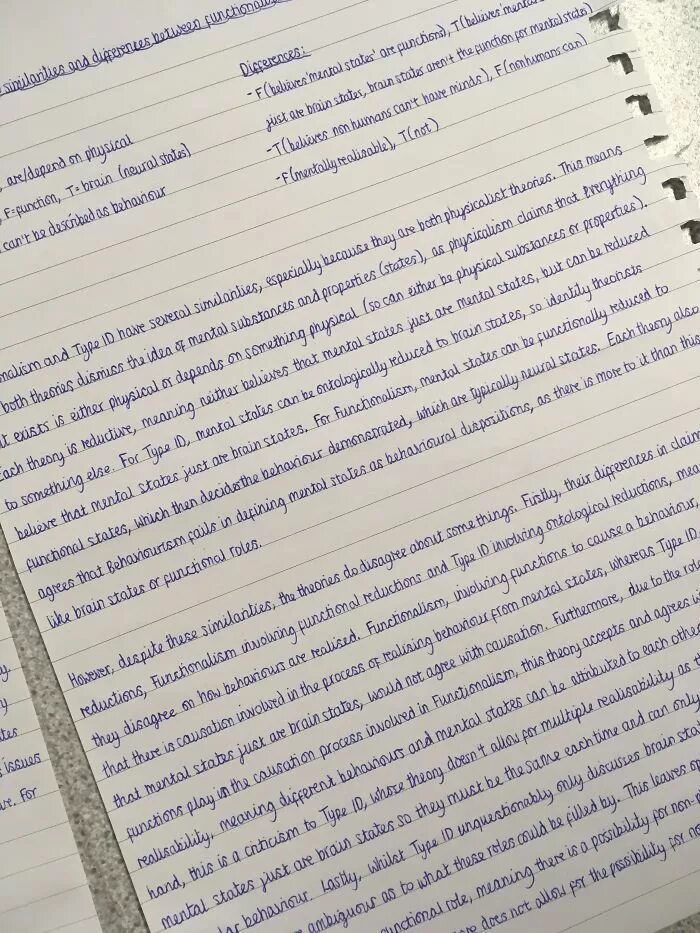 similarities and differences between functional
Differences:
- F(believes 'mental states' are functions), T(believes 'mental
just are brain states, brain states aren't the function for mental state)
- T(believes nonhumans can't have minds), F(nonhumans can)
- F(mentally realisable), T(not)
are/depend on physical
F=function, T=brain (neural states)
can't be described as behaviour
nalism and Type ID have several similarities, especially because they are both physicalist theories. This means
both theories dismiss the idea of mental substances and properties (states), as physicalism claims that everything
t exists is either physical or depends on something physical (so can either be physical substances or properties).
Each theory is reductive, meaning neither believes that mental states just are mental states, but can be reduced
to something else. For Type ID, mental states can be ontologically reduced to brain states, so identity theorists
believe that mental states just are brain states. For Functionalism, mental states can be functionally reduced to
functional states, which then decides the behaviour demonstrated, which are typically neural states. Each theory also
agrees that Behaviourism fails in defining mental states as behavioural dispositions, as there is more to it than this
like brain states or functional roles.
However, despite these similarities, the theories do disagree about some things. Firstly, their differences in claim
reductions, Functionalism involving functional reductions and Type ID involving ontological reductions, mea
they disagree on how behaviours are realised. Functionalism, involving functions to cause a behaviour,
that there is causation involved in the process of realising behaviour from mental states, whereas Type ID
that mental states just are brain states, would not agree with causation. Furthermore, due to the role
functions play in the causation process involved in Functionalism, this theory accepts and agrees wi
realisability, meaning different behaviours and mental states can be attributed to each other
hand, this is a criticism to Type ID, whose theory doesn't allow for multiple realisability as th
mental states just are brain states so they must be the same each time and can only
lar behaviour. Lastly, whilst Type ID unquestionably only discusses brain stat
ambiguous as to what these roles could be filled by. This leaves op
unctional role, meaning there is a possibility for non-
does not allow for the possibility for
issues
ve. For